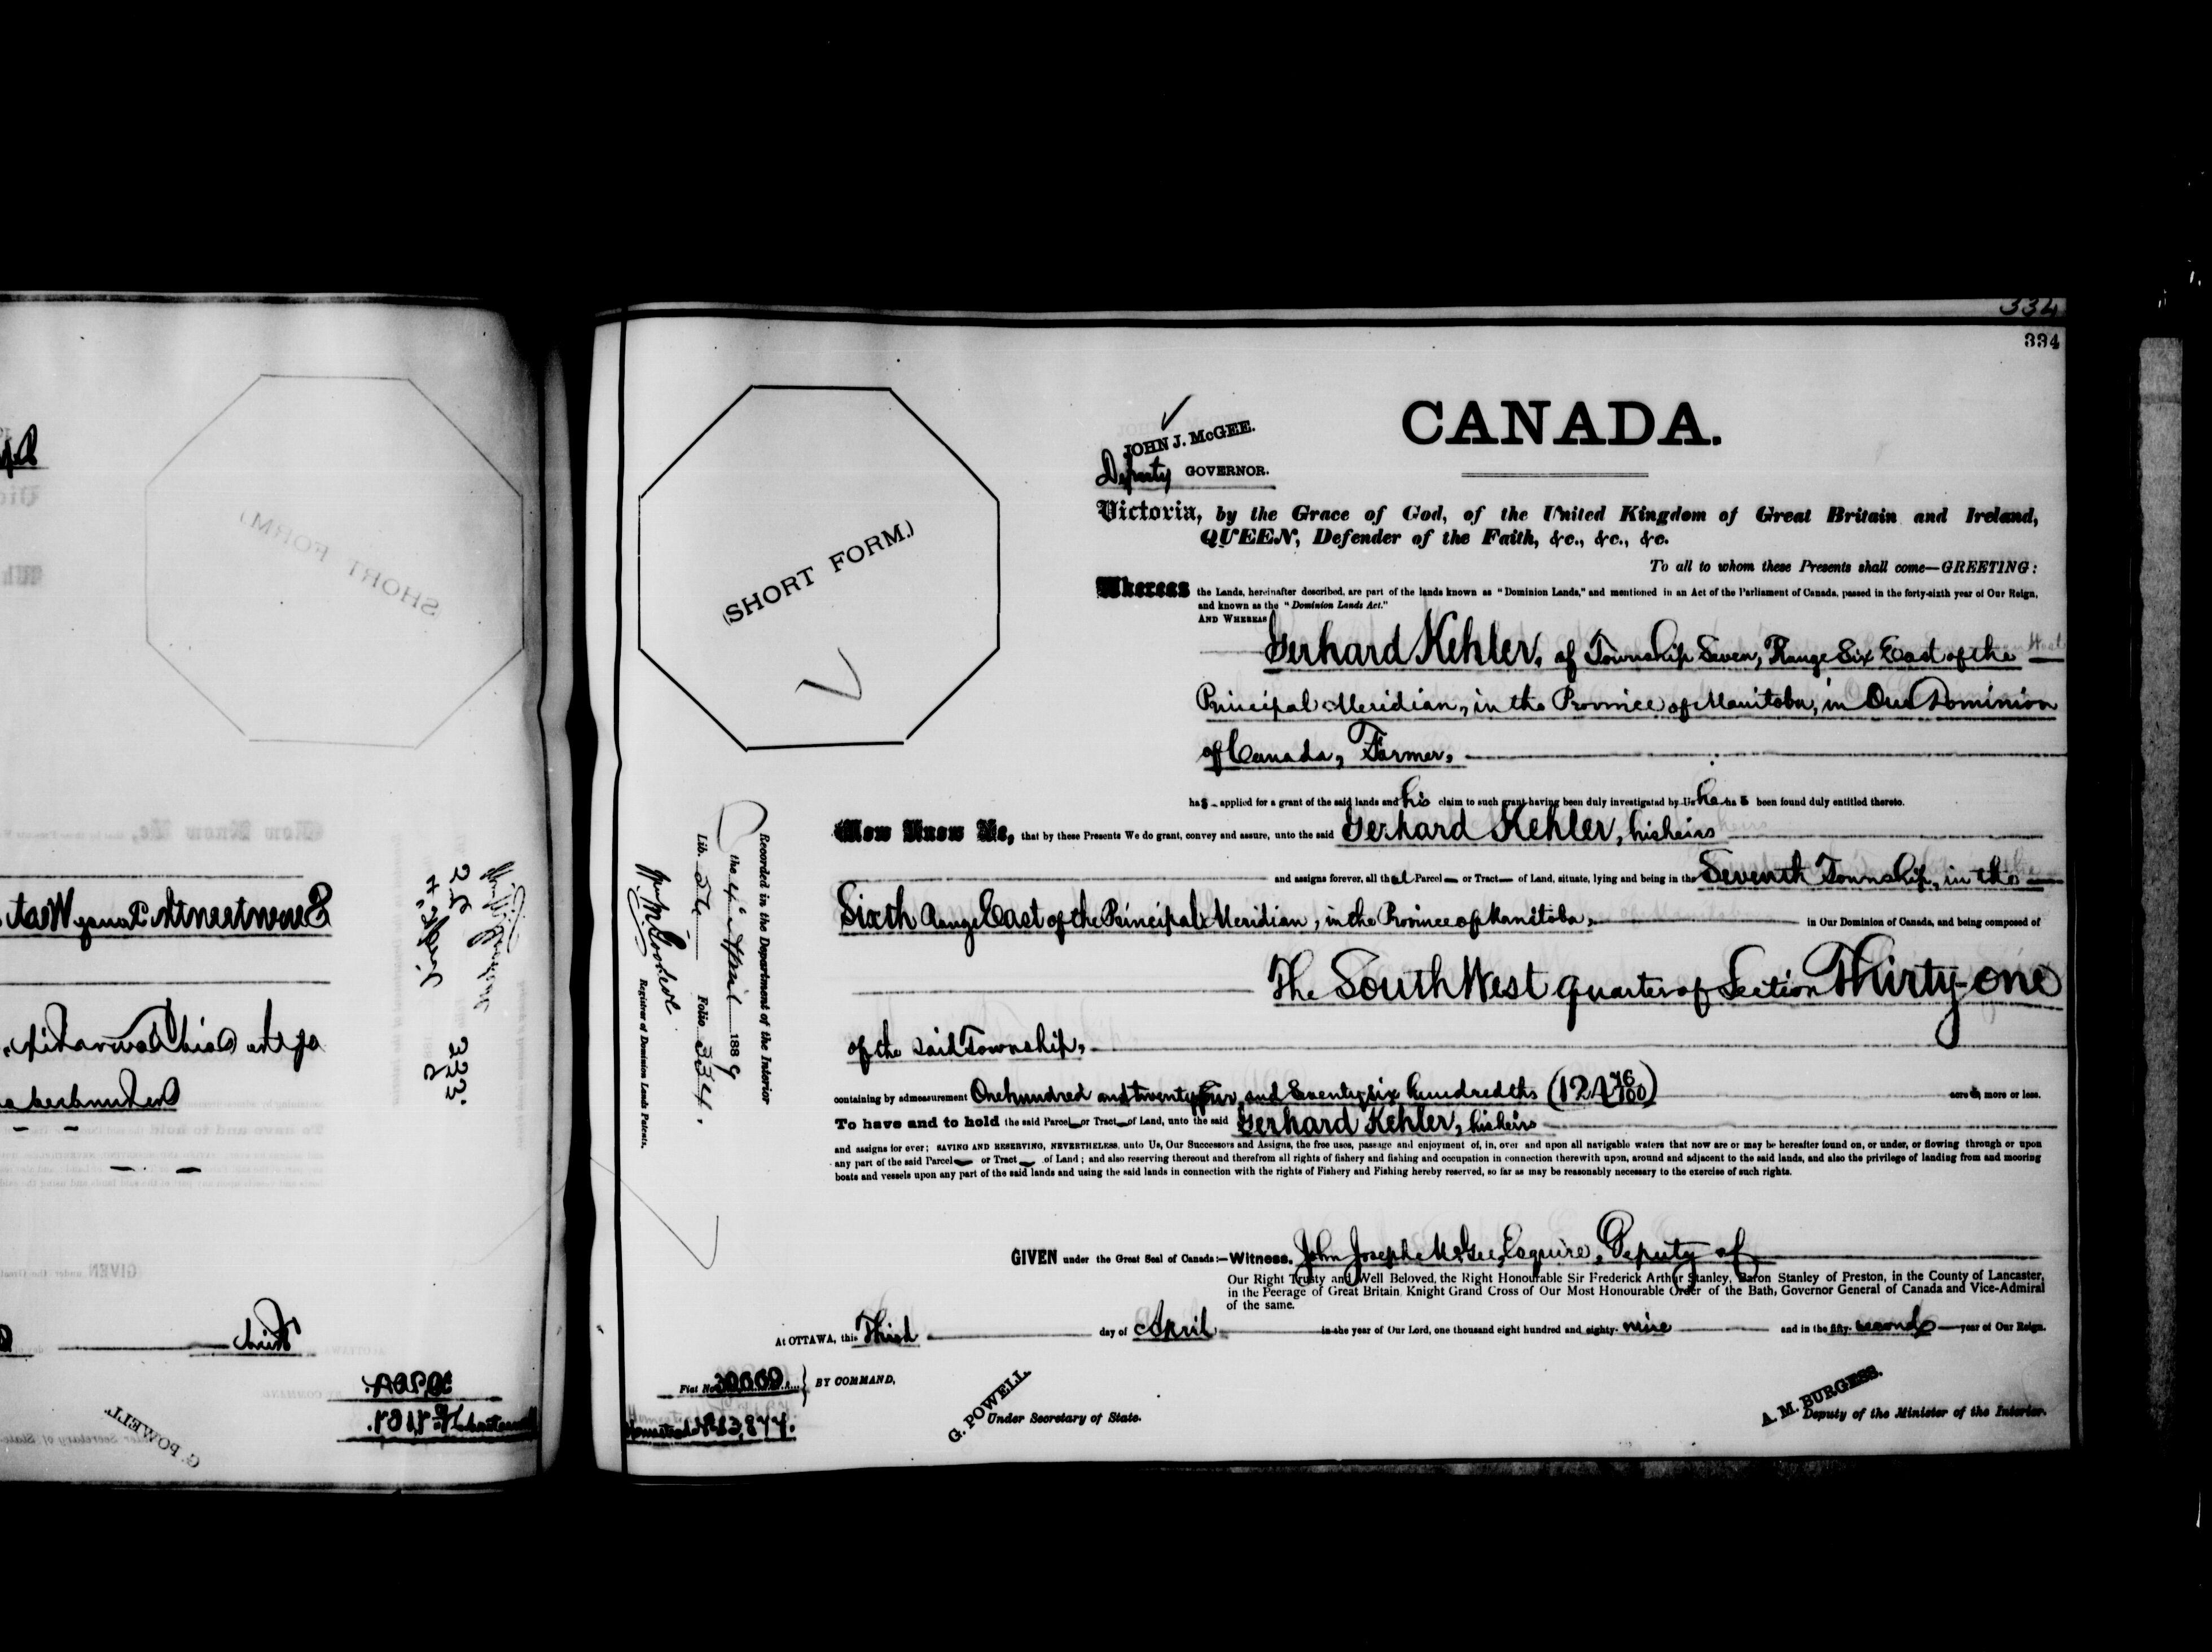 334
334
CANADA.
JOHN J. McGEE.
Deputy GOVERNOR.
(SHORT FORM.)
Victoria, by the Grace of God, of the United Kingdom of Great Britain and Ireland,
QUEEN, Defender of the Faith, &c., &c., &c.
To all to whom these Presents shall come—GREETING:
Whereas the Lands, hereinafter described, are part of the lands known as "Dominion Lands," and mentioned in an Act of the Parliament of Canada, passed in the forty-sixth year of Our Reign,
and known as the "Dominion Lands Act."
AND WHEREAS
Gerhard Kehler, of Township Seven, Range Six East of the
Principal Meridian, in the Province of Manitoba, in Our Dominion
of Canada, Farmer,
has applied for a grant of the said lands and his claim to such grant having been duly investigated by Us he has been found duly entitled thereto.
Now Know Ye, that by these Presents We do grant, convey and assure, unto the said Gerhard Kehler, his heirs
and assigns forever, all that Parcel or Tract of Land, situate, lying and being in the Seventh Township, in the
Sixth Range East of the Principal Meridian, in the Province of Manitoba, in Our Dominion of Canada, and being composed of
The South West quarter of Section Thirty-one
of the said Township,
containing by admeasurement One hundred and twenty four and Seventy six hundredths (124 76/100) acres, more or less.
To have and to hold the said Parcel or Tract of Land, unto the said Gerhard Kehler, his heirs
and assigns for ever; SAVING AND RESERVING, NEVERTHELESS, unto Us, Our Successors and Assigns, the free uses, passage and enjoyment of, in, over and upon all navigable waters that now are or may be hereafter found on, or under, or flowing through or upon
any part of the said Parcel or Tract of Land; and also reserving thereout and therefrom all rights of fishery and fishing and occupation in connection therewith upon, around and adjacent to the said lands, and also the privilege of landing from and mooring
boats and vessels upon any part of the said lands and using the said lands in connection with the rights of Fishery and Fishing hereby reserved, so far as may be reasonably necessary to the exercise of such rights.
GIVEN under the Great Seal of Canada:—Witness, John Joseph McGee, Esquire, Deputy of
Our Right Trusty and Well Beloved, the Right Honourable Sir Frederick Arthur Stanley, Baron Stanley of Preston, in the County of Lancaster,
in the Peerage of Great Britain Knight Grand Cross of Our Most Honourable Order of the Bath, Governor General of Canada and Vice-Admiral
of the same.
At OTTAWA, this Third day of April in the year of Our Lord, one thousand eight hundred and eighty-nine and in the fifty-second year of Our Reign.
Fiat No. 30669 BY COMMAND,
Homestead
G. POWELL.
Under Secretary of State.
A. M. BURGESS.
Deputy of the Minister of the Interior.
Recorded in the Department of the Interior
the April 1889
Lib. Folio 334.
Registrar of Dominion Lands Patents.
(SHORT FORM.)
G. POWELL.